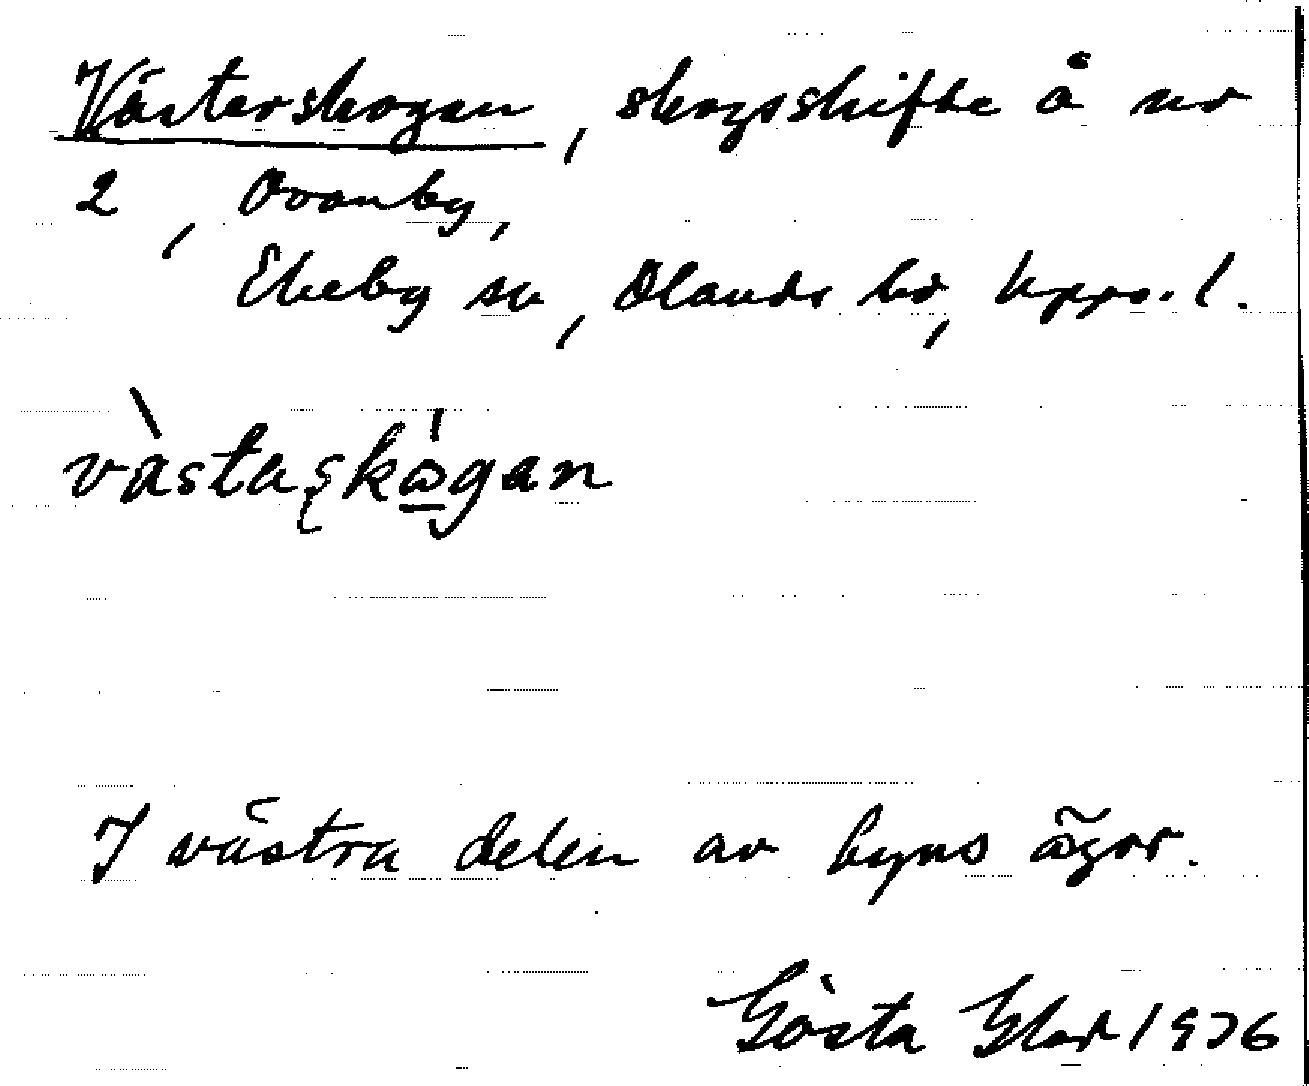 Västerskogen, skogsskifte å nr
2, Ovanby,
Ekeby sn, Olands hd, Upps. l.
vàstaşkågan
I västra delen av byns ägor.
Gösta 1976